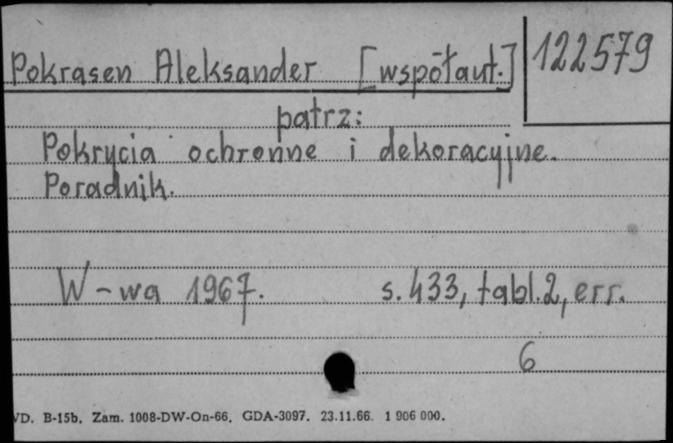 Pokrasen Aleksander [współaut.] 122579
patrz:
Pokrycia ochronne i dekoracyjne.
Poradnik.
W-wa 1967. s. 433, tabl. 2, err.
6
VD. B-15b. Zam. 1008-DW-On-66. GDA-3097. 23.11.66. 1 906 000.